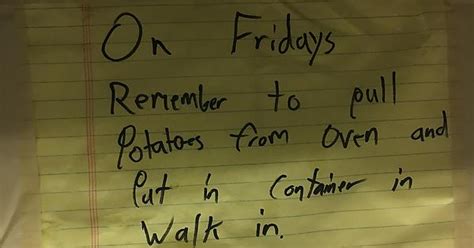 On Fridays
Remember to pull
Potatoes from oven and
Put in Container in
Walk in.